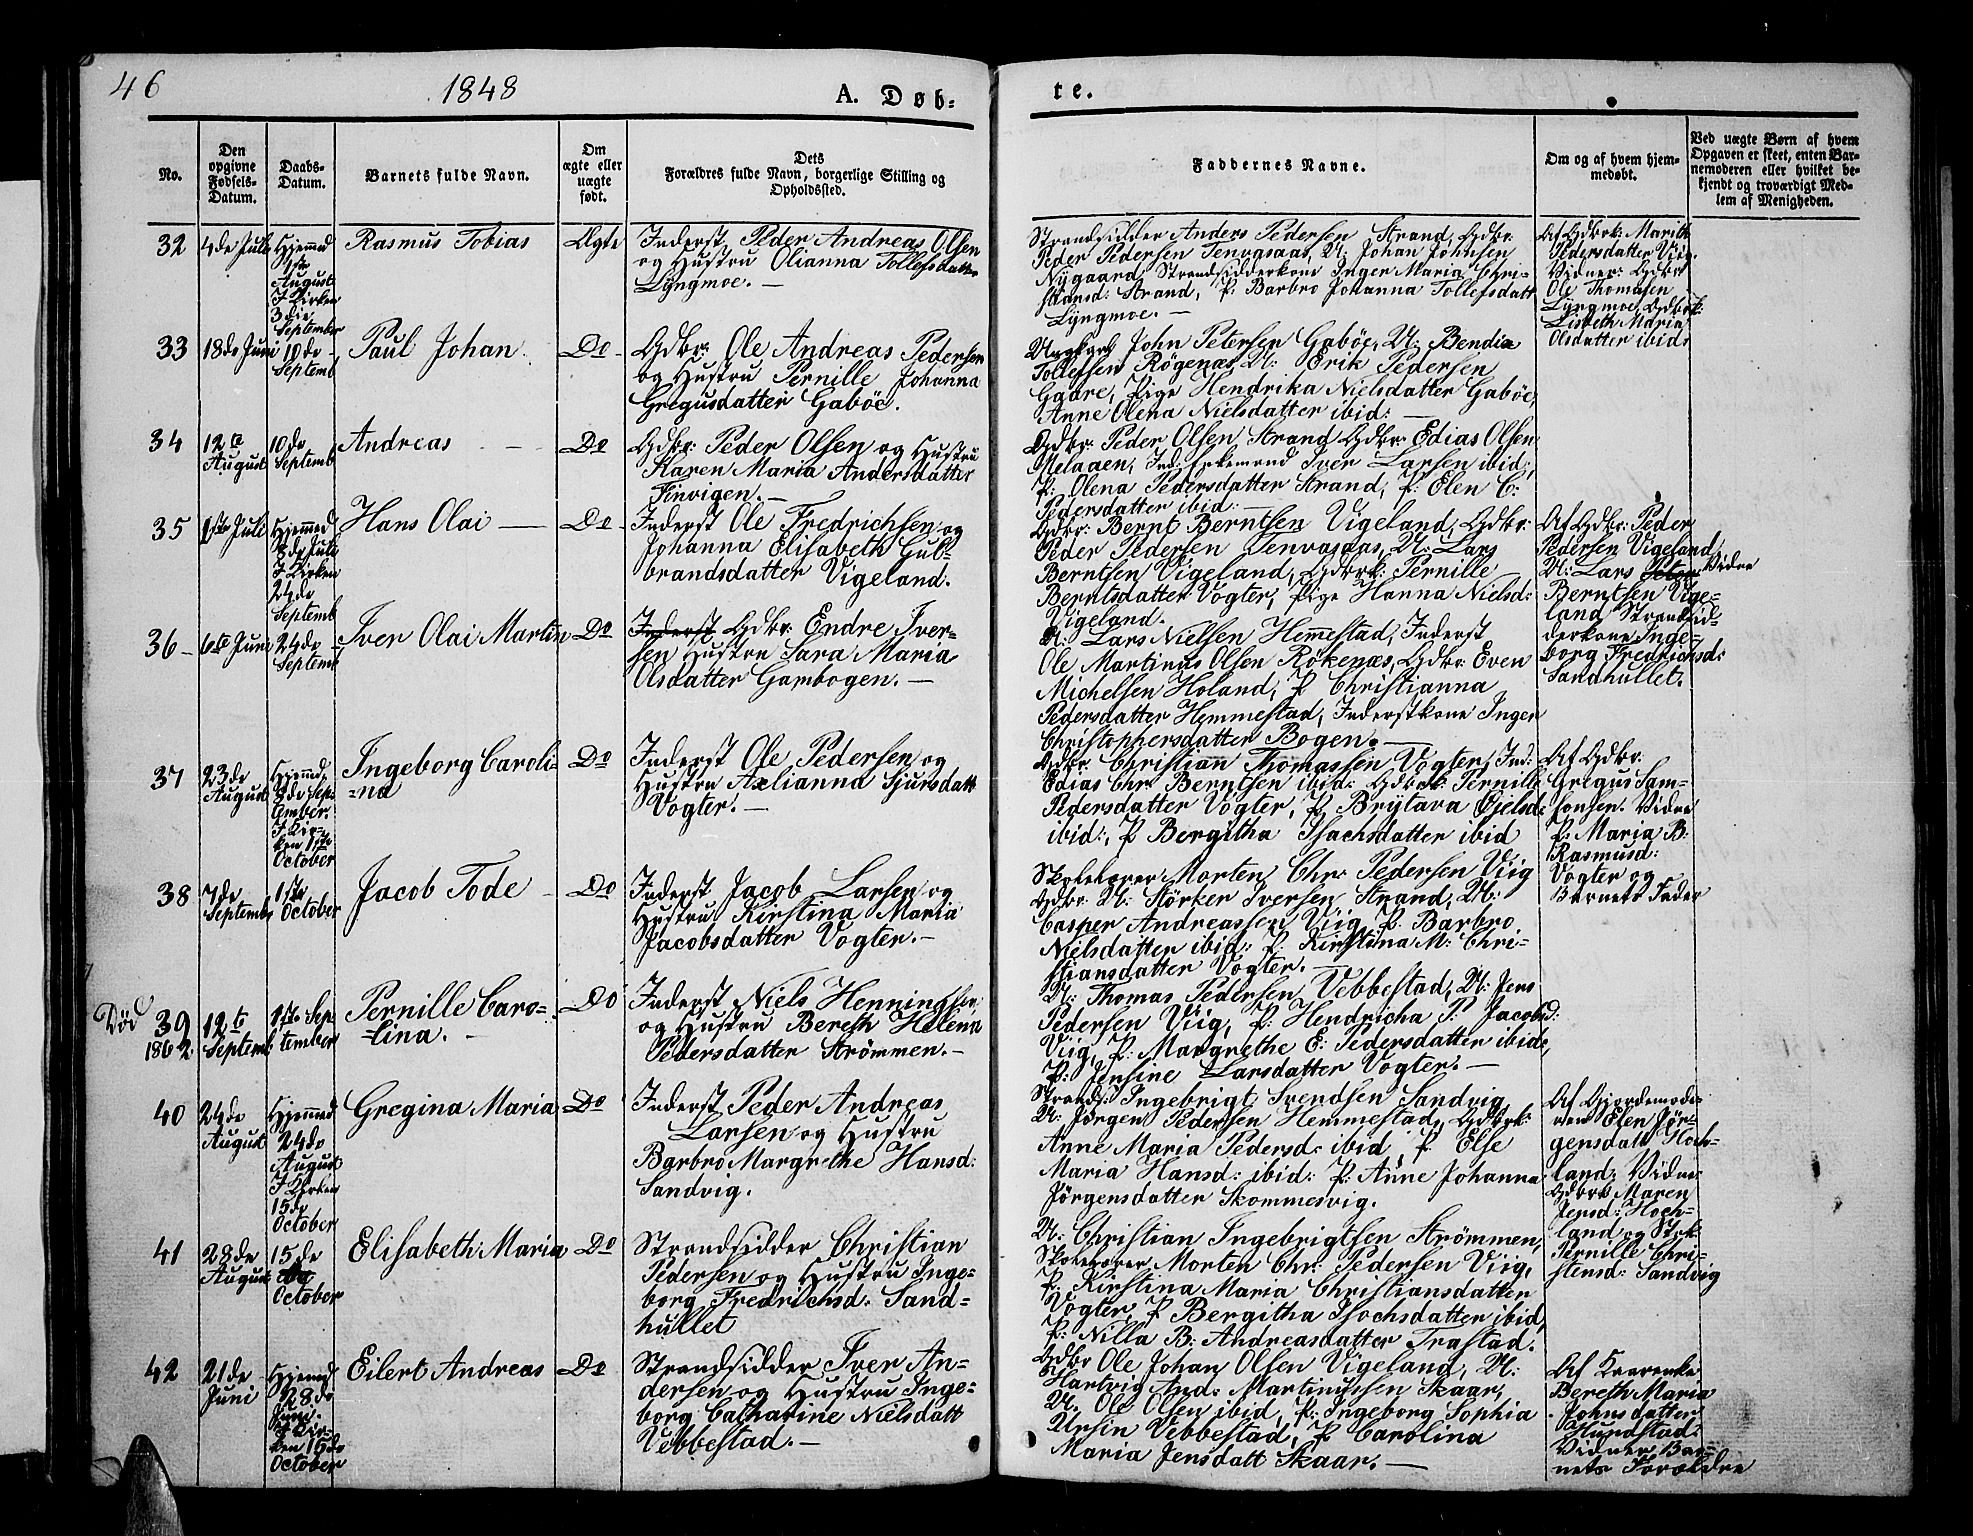 46
1848
A. Døb-
te.
No.
Den
opgivne
Fødsels-
Datum.
Daabs-
Datum.
Barnets fulde Navn.
Om
ægte eller
uægte
født.
Dets
Forældres fulde Navn, borgerlige Stilling og
Opholdssted.
Faddernes Navne.
Om og af hvem hjem-
medøbt.
Ved uægte Børn af hvem
Opgaven er skeet, enten Bar-
nemoderen eller hvilket be-
kjendt og troværdigt Med-
lem af Menigheden.
32
4de Juli
Hjemmed
August
I Kirken
3die
September
Rasmus Tobias
Ægte
Inderst Peder Andreas Olsen
og Hustru Olianna Tollefsdatter
Lyngmoe. —
Strandsidder Anders Pedersen Strand, Gdbr:
Peder Pedersen Tenvasaas, U: Johan Johnsen
Nygaard, Strandsidderkone Inger Maria Chri-
stiansd: Strand, P: Barbro Johanna Tollefsdatt
Lyngmoe. —
Af Gdbrk: Marith
Pedersdatter Viig.
Vidner: Gdbr
Ole Thomasen
Lyngmoe, Gdbrk:
Lisbeth Maria
Olsdatter ibid:
33
18de Juni
10de
Septemb
Paul Johan
Do
Gdbr: Ole Andreas Pedersen
og Hustru Pernille Johanna
Gregusdatter Gaböe.
John Petersen Gaböe, U: Bendix
Tollefsen Rögenæs, U: Erik Pedersen
Gaare, Pige Hendrika Nielsdatter Gaböe,
Anne Olena Nielsdatter ibid: —
34
12te
August
10de
Septemb
Andreas —
Do
Gdbr: Peder Olsen og Hustru
Karen Maria Andersdatter
Finvigen. —
Gdbr: Peder Olsen Strand Gdbr: Edias Olsen
Melaaen, Ind: Iver Larsen ibid:,
P: Olena Pedersdatter Strand, P: Elen C:
Pedersdatter ibid: —
35
1ste Juli
Hjemmed
8de Juli
I Kirken
24de
Septemb
Hans Olai —
Do
Inderst Ole Fredrichsen og
Johanna Elisabeth Gul-
brandsdatter Vigeland.
Gdbr: Bernt Berntsen Vigeland, Gdbr:
Peder Pedersen Tenvasaas, U: Lars
Berntsen Vigeland, Gdbrk: Pernille
Berntsdatter Vogter, Pige Hanna Nielsd:
Vigeland.
Af Gdbr: Peder
Pedersen Vigeland,
U: Lars Vidne
Berntsen Vige-
land, Strandsid-
derkone Inge-
borg Fredrichsd:
Sandhullet.
36
6te Juni
24de
Septemb
Iver Olai Martin
Do
Inderst Gdbr: Endre Iver-
sen Hustru Sara Maria
Olsdatter Gambogen. —
U: Lars Nielsen Hemmestad, Inderst
Ole Martinus Olsen Rökenæs, Gdbr: Even
Michelsen Holand, P Christianna
Pedersdatter Hemmestad, Inderstkone Inger
Christophersdatter Bogen. —
37
23de
August
Hjemmed
3de Sep-
tember.
I Kir-
ken 1ste
October
Ingeborg Caroli-
-na
Do
Inderst Ole Pedersen og
Hustru Axlianna Sjursdatt
Vogter. —
Gdbr: Christian Thomassen Vogter, Ind:
Edias Chr Berntsen ibid: Gdbrk: Pernille
Pedersdatter Vogter, P: Brytava Ejelsd:
ibid:, P Bergitha Isachsdatter ibid
Af Gdbr:
Gregus Sam-
sonsen. Vidne
P: Maria B:
Rasmusd:
Vogter og
Barnets Fader
38
7de
Septembr
1ste
October
Jacob Tode —
Do
Inderst Jacob Larsen og
Hustru Kirstina Maria
Jacobsdatter Vogter. —
Skolelærer Morten Chr: Pedersen Viig
Gdbr: U: Störker Iversen Strand, U:
Casper Andreassen Viig, P: Barbro
Nielsdatter ibid: P: Kirstina M: Chri-
stiansdatter Vogter. —
Död
1862
39
12te
Septemb
1ste Sep
tember
Pernille Caro-
-lina. —
Do
Inderst Niels Henningsen
og Hustru Bereth Helena
Pedersdatter Strömmen. —
U: Thomas Pedersen Vebbestad, U: Jens
Pedersen Viig, P: Hendricha P. Jacobsd:
Viig, P: Margrethe E: Pedersdatter ibid:,
P: Jensine Larsdatter Vogter. —
40
24de
August
Hjemmed
24de
August
I Kirken
15de
October
Gregina Maria
Do
Inderst Peder Andreas
Larsen og Hustru
Barbro Margrethe Hansd:
Sandvig.
Strands: Ingebrigt Svendsen Sandvig
U: Jörgen Pedersen Hemmestad, Gdbrk:
Anne Maria Pedersd: ibid, P: Else
Maria Hansd: ibid: P: Anne Johanna
Jörgensdatter Skommesvig.
Af Gjordemode-
ren Elen Jör-
gensdatt Hoch-
land: Vidne
Gdbrk Maren
Jensd: Hoch-
land og
Pernille Chri-
stensd: Sandvig
41
28de
August
15de
October
Elisabeth Maria
Do
Strandsidder Christian
Pedersen og Hustru Inge-
borg Fredrichsd: Sand-
hullet
U: Christian Ingebrigtsen Strömmen,
Skolelærer Morten Chr: Pedersen Viig,
P: Kirstina Maria Christiansdatter
Vogter, P Bergitha Isachsdatter ibid,
P: Nilla B: Andreasdatter Trastad.
42
21de
Juni
Hjemmd
28de
Juni.
I Kir-
ken 15de
October
Eilert Andreas
Do
Strandsidder Iver An-
dersen og Hustru Inge-
borg Catharine Nielsdatt
Vebbestad. —
Gdbr Ole Johan Olsen Vigeland, U:
Hartvig And: Martinussen Skaar,
U. Ole Olsen ibid, P: Ingeborg Sophia
Ursin Vebbestad, P Carolina
Maria Jensdatt Skaar. —
Af
Bereth Maria
Johnsdatter
Hundstad:
Vidner Bar-
nets Forældre